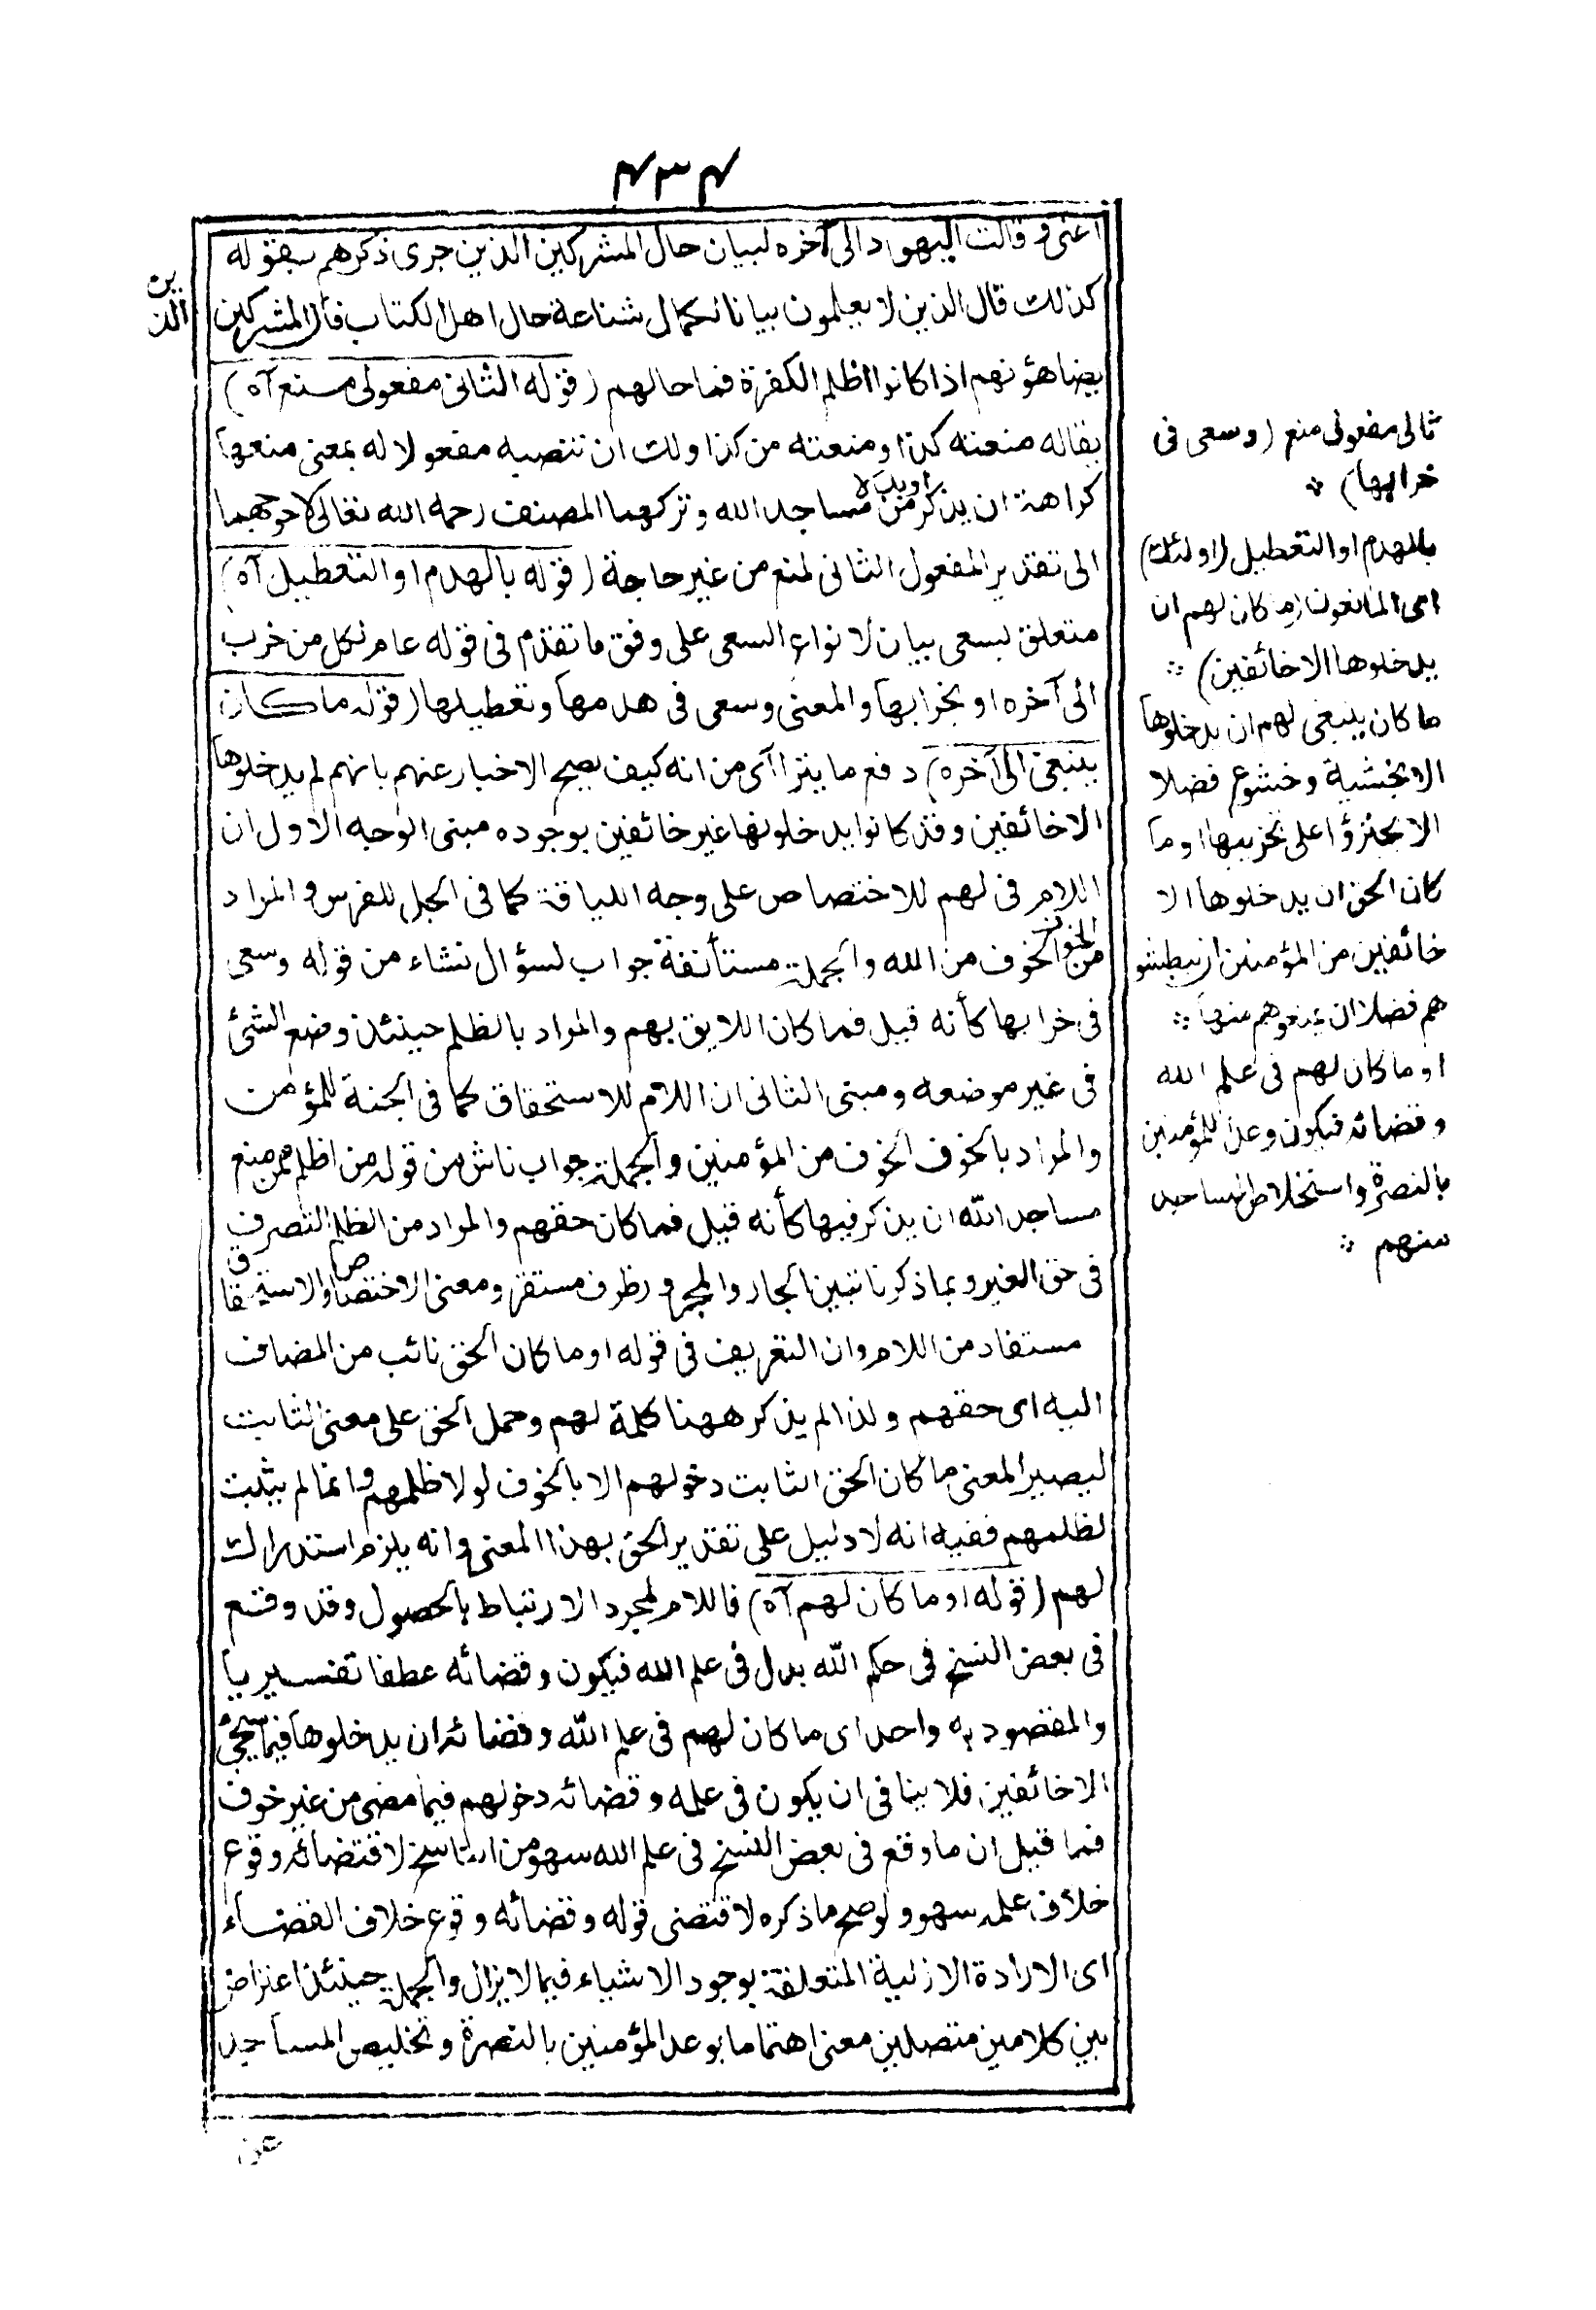 ٤٣٤
اعنى وقالت اليهود الى آخره لبيان حال المشركين الذين جرى ذكرهم بقوله
كذلك قال الذين لا يعلمون بيانا لكمال شناعة حال اهل الكتاب فان المشركين
الذين
يضاهؤنهم اذا كانوا اظلم الكفرة فما حالهم (قوله الثانى مفعولى منع آه)
يقال منعته كذا ومنعته من كذا ولك ان تنصبه مفعولا له بمعنى منعها
كراهة ان يذكر من مساجد الله وتركهما المصنف رحمه الله تعالى لاحوجهما
الى تقدير المفعول الثانى لمنع من غير حاجة (قوله بالهدم او التعطيل آه)
متعلق بسعى بيان لانواع السعى على وفق ما تقدم فى قوله عام لكل من خرب
الى آخره او بخرابها والمعنى وسعى فى هدمها وتعطيلها (قوله ما كان
ينبغى الى آخره) دفع ما يتراآى من انه كيف يصح الاخبار عنهم بانهم لم يدخلوها
الا خائفين وقد كانوا يدخلونها غير خائفين بوجوده مبنى الوجه الاول ان
اللام فى لهم للاختصاص على وجه اللياقة كما فى الجل للفرس والمراد
من الخوف الخوف من الله والجملة مستأنفة جواب لسؤال نشاء من قوله وسعى
فى خرابها كأنه قيل فما كان اللايق بهم والمراد بالظلم حينئذ وضع الشئ
فى غير موضعه ومبنى الثانى ان اللام للاستحقاق كما فى الجنة للمؤمن
والمراد بالخوف الخوف من المؤمنين والجملة جواب ناش من قوله من اظلم ممن منع
مساجد الله ان يذكر فيها كأنه قيل فما كان حقهم والمراد من الظلم التصرف
فى حق الغير وبما ذكرنا تبين الجار والمجرور ظرف مستقر ومعنى الاختصاص والاستحقاق
مستفاد من اللام وان التعريف فى قوله او ما كان الحق نائب من المضاف
اليه اى حقهم ولذا لم يذكر ههنا كلمة لهم وحمل الحق على معنى الثابت
ليصير المعنى ما كان الحق الثابت دخولهم الا بالخوف لولا ظلمهم وانما لم يثبت
لظلمهم ففيه انه لا دليل على تقدير الحق بهذا المعنى وانه يلزم استدراك
لهم (قوله او ما كان لهم آه) فاللام لمجرد الارتباط بالحصول وقد وقع
فى بعض النسخ فى حكم الله بدل فى علم الله فيكون وقضائه عطفا تفسيريا
والمقصود به واحد اى ما كان لهم فى علم الله وقضائه ان يدخلوها فيما سيجئ
الا خائفين فلا ينافى ان يكون فى علمه وقضائه دخولهم فيما مضى من غير خوف
فما قيل ان ما وقع فى بعض النسخ فى علم الله سهو من الناسخ لاقتضائه وقوع
خلاف علمه سهو ولو صح ما ذكره لاقتضى قوله وقضائه وقوع خلاف القضاء
اى الارادة الازلية المتعلقة بوجود الاشياء فيما لا يزال والجملة حينئذ اعتراض
بين كلامين متصلين معنى اهتماما بوعد المؤمنين بالنصرة وتخليص المساجد
عن
ثانى مفعولى منع (وسعى فى
خرابها)
بالهدم او التعطيل (اولئك)
اى المانعون (ما كان لهم ان
يدخلوها الا خائفين)
ما كان ينبغى لهم ان يدخلوها
الا بخشية وخشوع فضلا
الا يجترؤا على تخريبها او ما
كان الحق ان يدخلوها الا
خائفين من المؤمنين ان يبطشو
هم فضلا ان يمنعوهم منها
او ما كان لهم فى علم الله
وقضائه فيكون وعدا للمؤمنين
بالنصرة واستخلاص المساجد
منهم